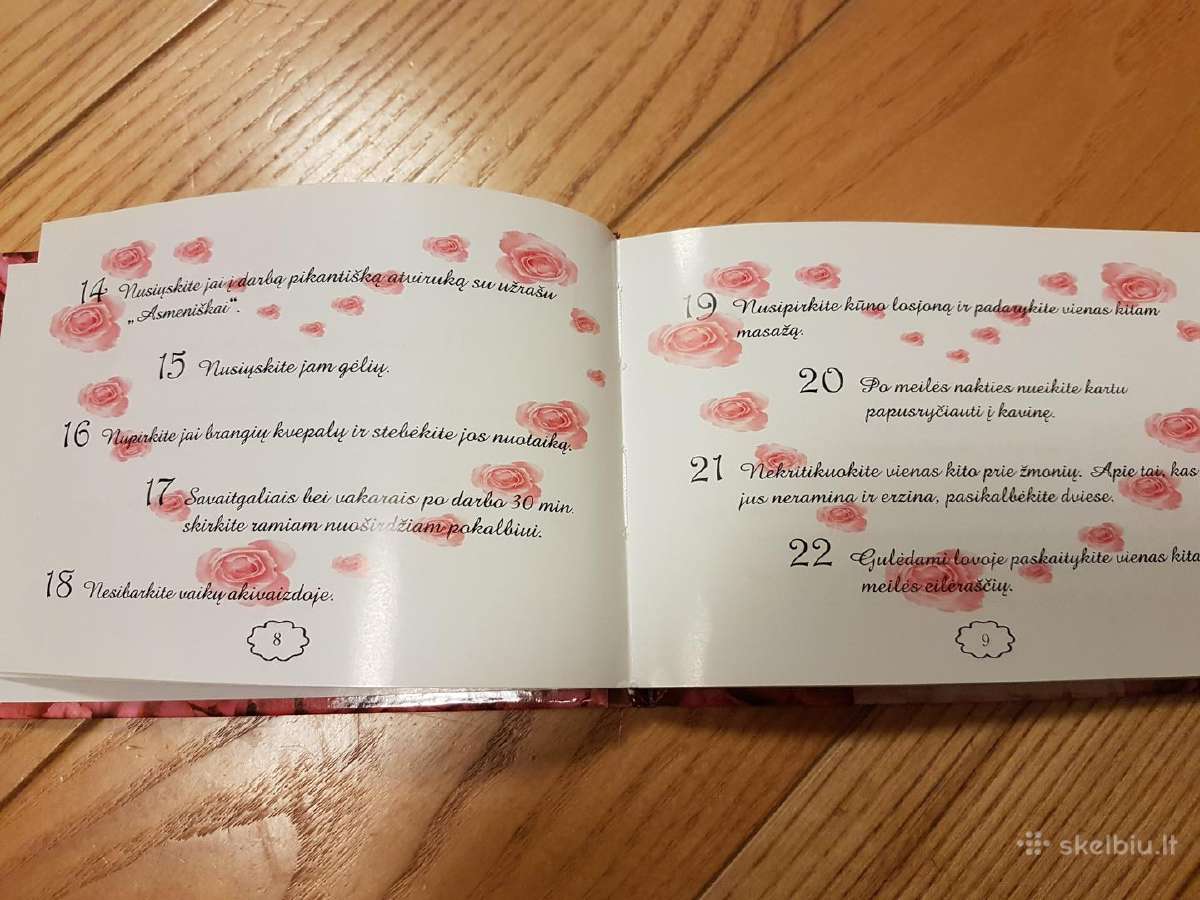 14 Nusiųskite jai į darbą pikantišką atviruką su užrašu
„Asmeniškai“.
15 Nusiųskite jam gėlių.
16 Nupirkite jai brangių kvepalų ir stebėkite jos nuotaiką.
17 Savaitgaliais bei vakarais po darbo 30 min.
skirkite ramiam nuoširdžiam pokalbiui.
18 Nesibarkite vaikų akivaizdoje.
8
19 Nusipirkite kūno losjoną ir padarykite vienas kitam
masažą.
20 Po meilės nakties nueikite kartu
papusryčiauti į kavinę.
21 Nekritikuokite vienas kito prie žmonių. Apie tai, kas
jus neramina ir erzina, pasikalbėkite dviese.
22 Gulėdami lovoje paskaitykite vienas kita
meilės eilėraščių.
9
skelbiu.lt